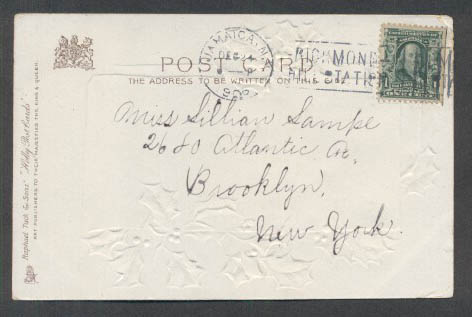 JAMAICA, N.Y.
DEC
RICHMOND
STATION
POST CARD
THE ADDRESS TO BE WRITTEN ON THIS SIDE
Miss Lillian Lampe
2680 Atlantic Av.
Brooklyn,
New York.
Raphael Tuck & Sons' "Holly Post Cards"
ART PUBLISHERS TO THEIR MAJESTIES THE KING & QUEEN.